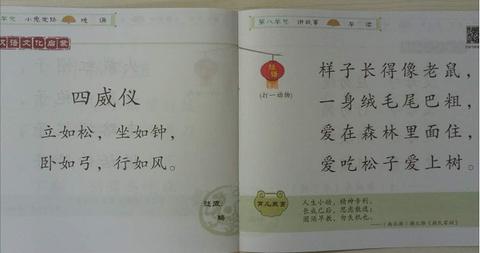 第八单元 讲故事 早读
汉语文化启蒙
四威仪
立如松，坐如钟，
卧如弓，行如风。
谜语
(打一动物)
样子长得像老鼠，
一身绒毛尾巴粗，
爱在森林里面住，
爱吃松子爱上树。
育儿故事
人生小幼，精神专利，
长成已后，思虑散逸；
固须早教，勿失机也。